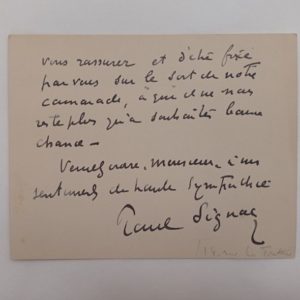 vous rassurer et d'être fixé
par vous sur le sort de notre
camarade, à qui il ne nous
reste plus qu'à souhaiter bonne
chance —
Veuillez croire, monsieur, à mes
sentiments de haute sympathie
Paul Signac
14, rue La